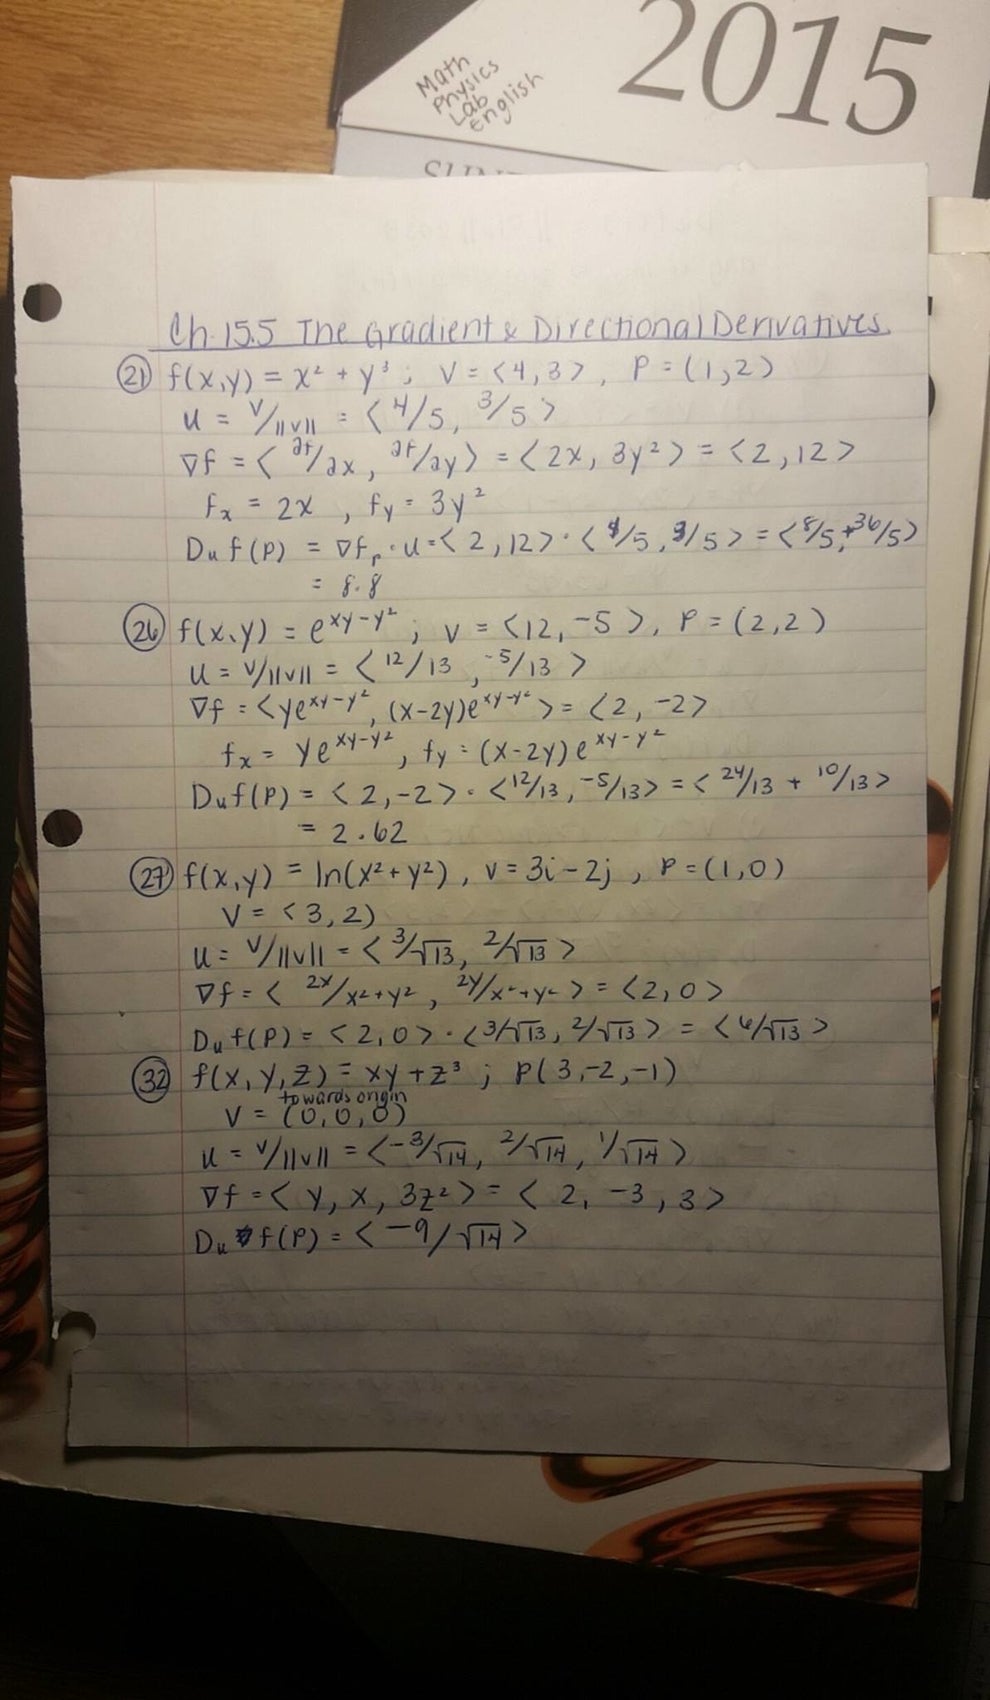 2015
Math
Physics
Lab
English
Ch. 15.5 The Gradient & Directional Derivatives
(21) f(x,y) = x² + y³ ; v = <4,3>, P = (1,2)
u = v/||v|| = <4/5, 3/5>
∇f = <∂f/∂x, ∂f/∂y> = <2x, 3y²> = <2,12>
fx = 2x , fy = 3y²
Du f(P) = ∇fp · u = <2,12> · <4/5, 3/5> = <8/5 + 36/5>
= 8.8
(26) f(x,y) = e^(xy-y²) ; v = <12,-5>, P = (2,2)
u = v/||v|| = <12/13, -5/13>
∇f = <ye^(xy-y²), (x-2y)e^(xy-y²)> = <2,-2>
fx = ye^(xy-y²), fy = (x-2y)e^(xy-y²)
Duf(P) = <2,-2> · <12/13, -5/13> = <24/13 + 10/13>
= 2.62
(27) f(x,y) = ln(x²+y²), v = 3i-2j, P = (1,0)
v = <3,2)
u = v/||v|| = <3/√13, 2/√13>
∇f = <2x/x²+y², 2y/x²+y²> = <2,0>
Duf(P) = <2,0> · <3/√13, 2/√13> = <6/√13>
(32) f(x,y,z) = xy+z³ ; P(3,-2,-1)
towards origin
v = (0,0,0)
u = v/||v|| = <-3/√14, 2/√14, 1/√14>
∇f = <y, x, 3z²> = <2, -3, 3>
Du f(P) = <-9/√14>